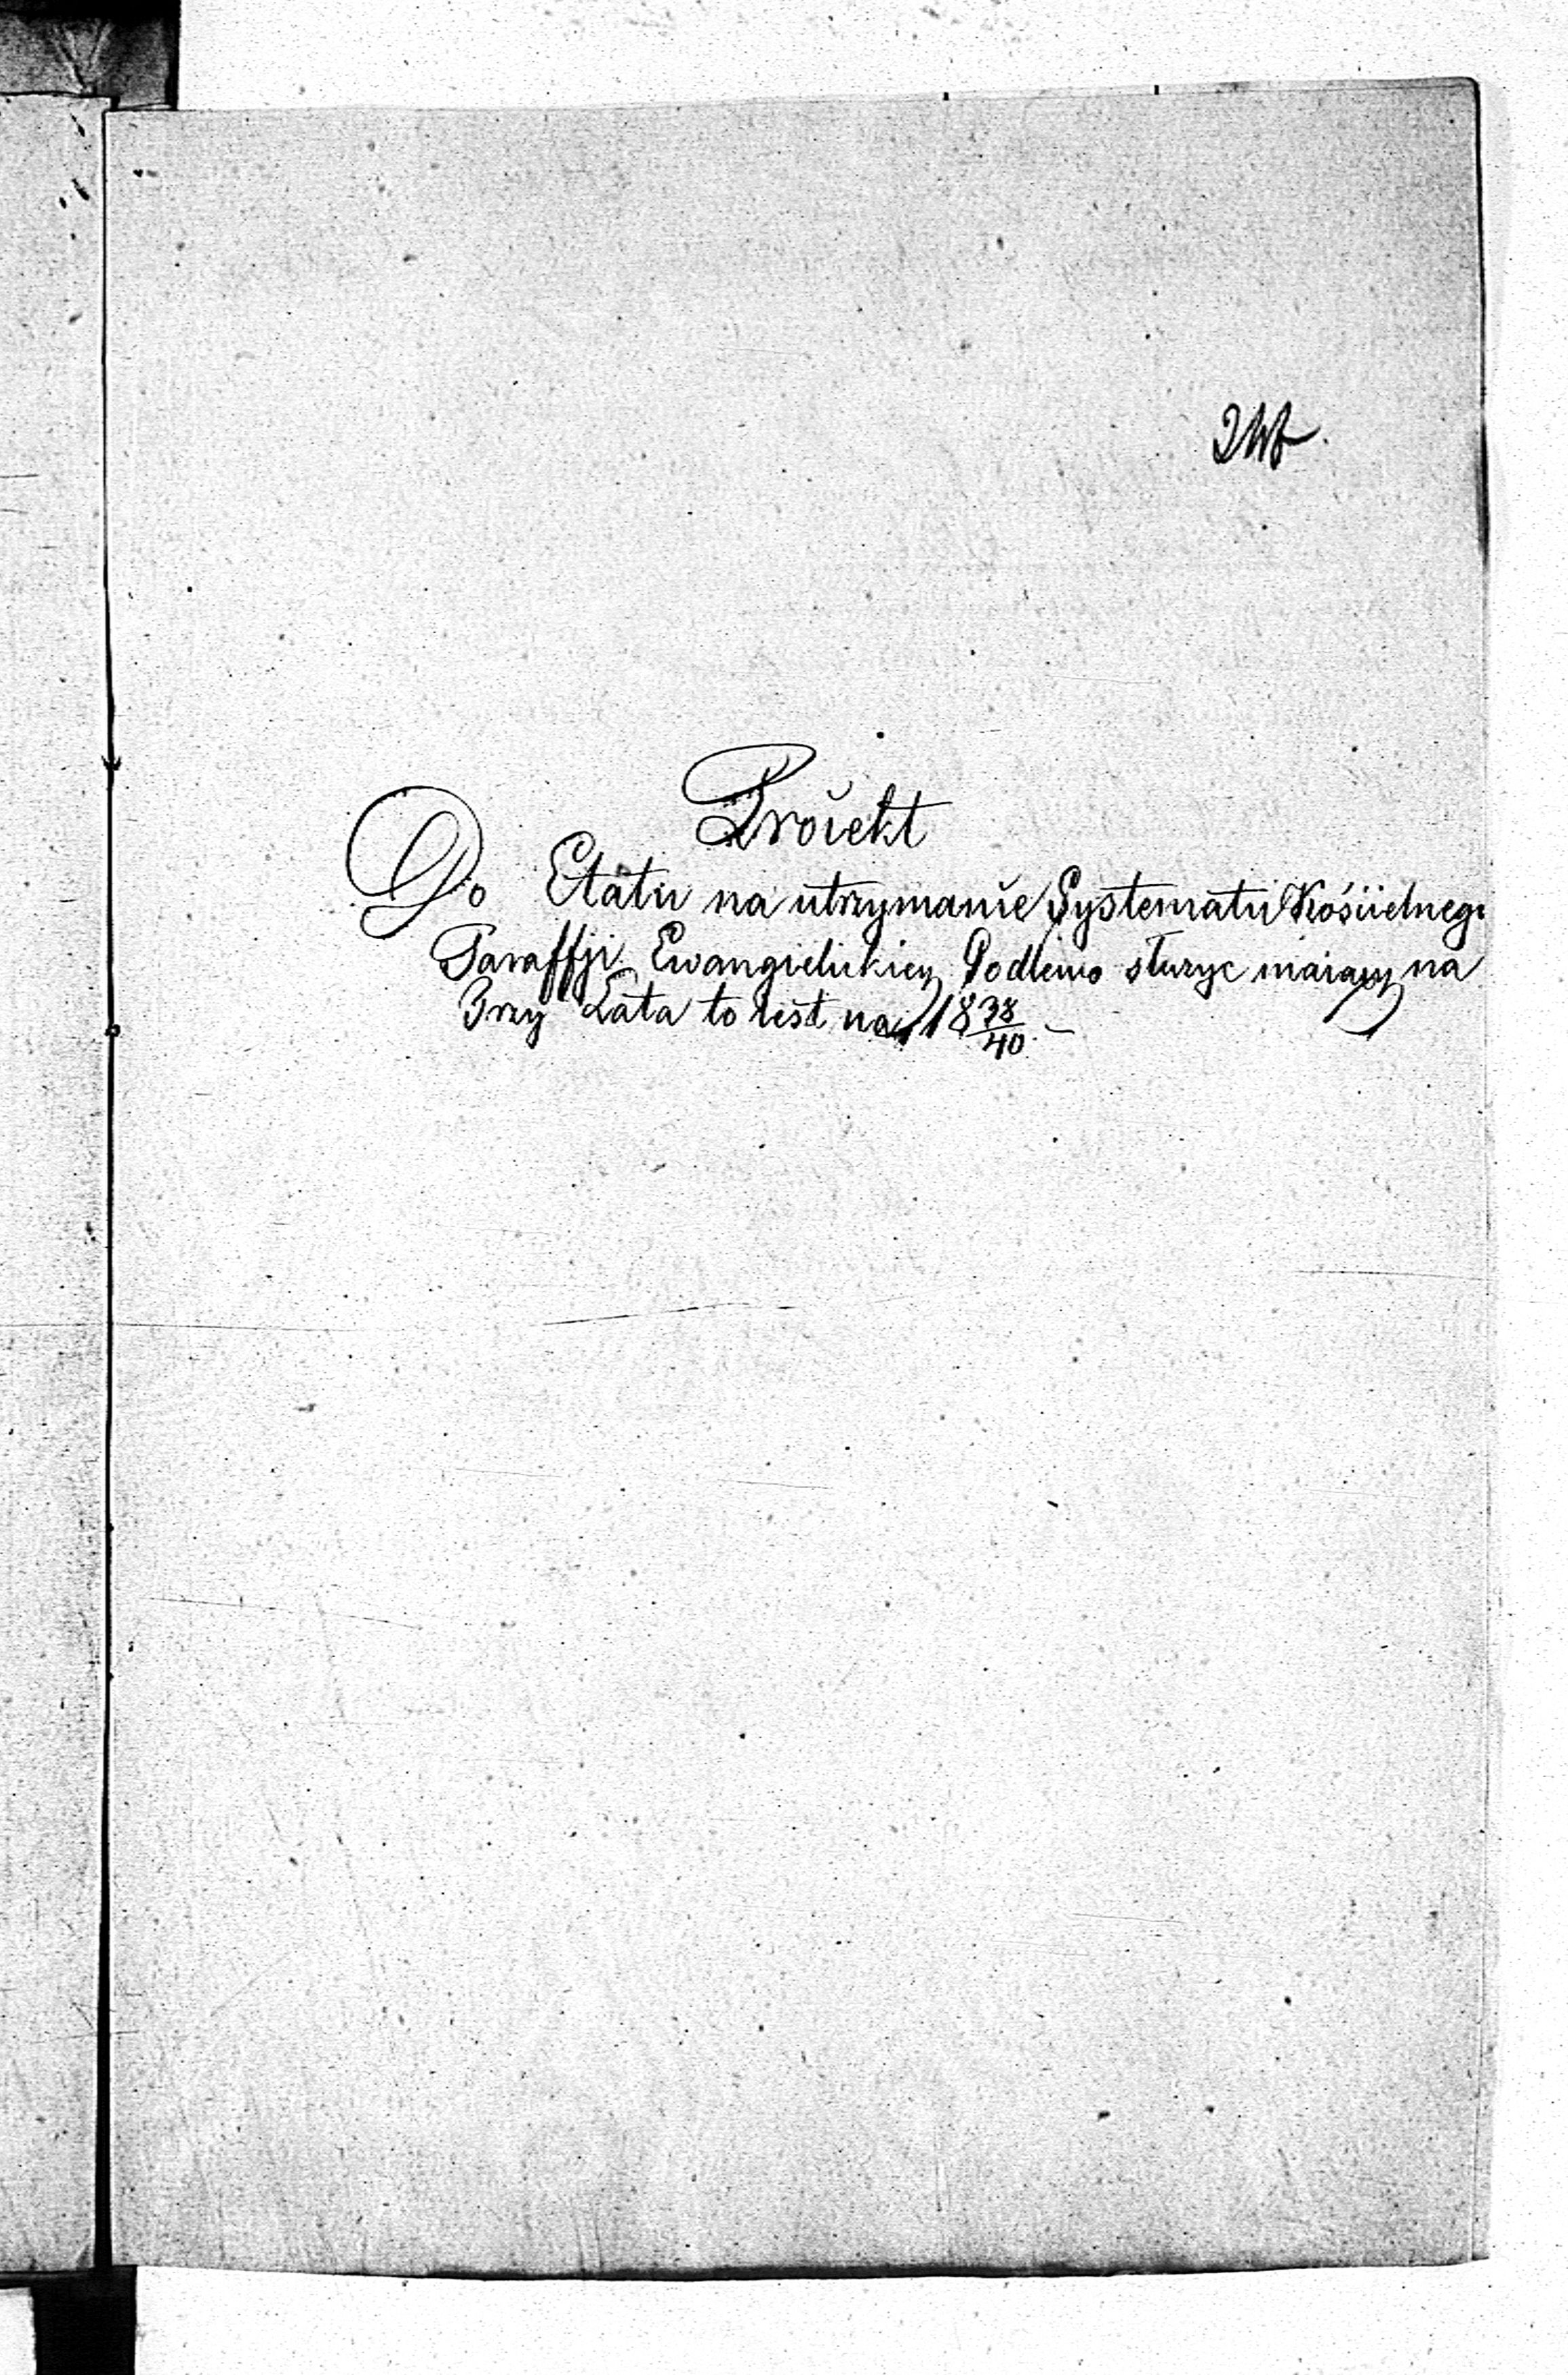 Proiekt
Do Etatu na utrzymanie Systematu Kościelnego
Paraffji Ewangielickiey Podlewo służyc maiący na
Trzy Lata to iest na 18 38/40. –